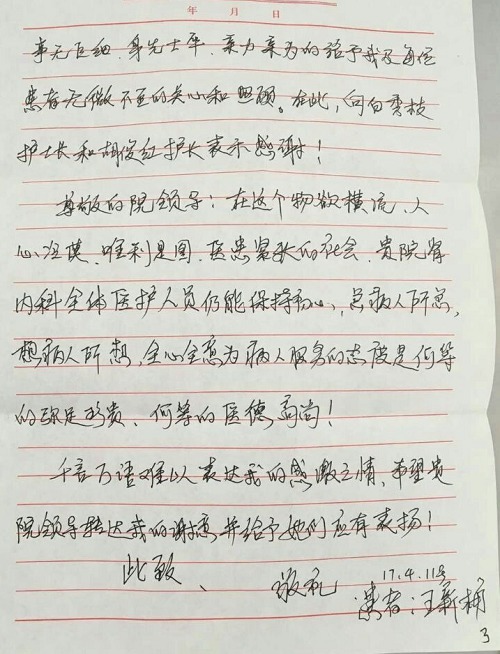 年 月 日
事无巨细、身先士卒、亲力亲为的给予我及每位
患者无微不至的关心和照顾。在此，向白秀枝
护士长和胡俊红护长表示感谢！
尊敬的院领导：在这个物欲横流、人
心冷漠、唯利是图、医患紧张的社会，贵院肾
内科全体医护人员仍能保持初心，急病人所急，
想病人所想，全心全意为病人服务的态度是何等
的弥足珍贵、何等的医德高尚！
千言万语难以表达我的感激之情，希望贵
院领导转达我的谢意，并给予她们应有表扬！
此致、 敬礼
17.4.11号
患者：王新桶
3